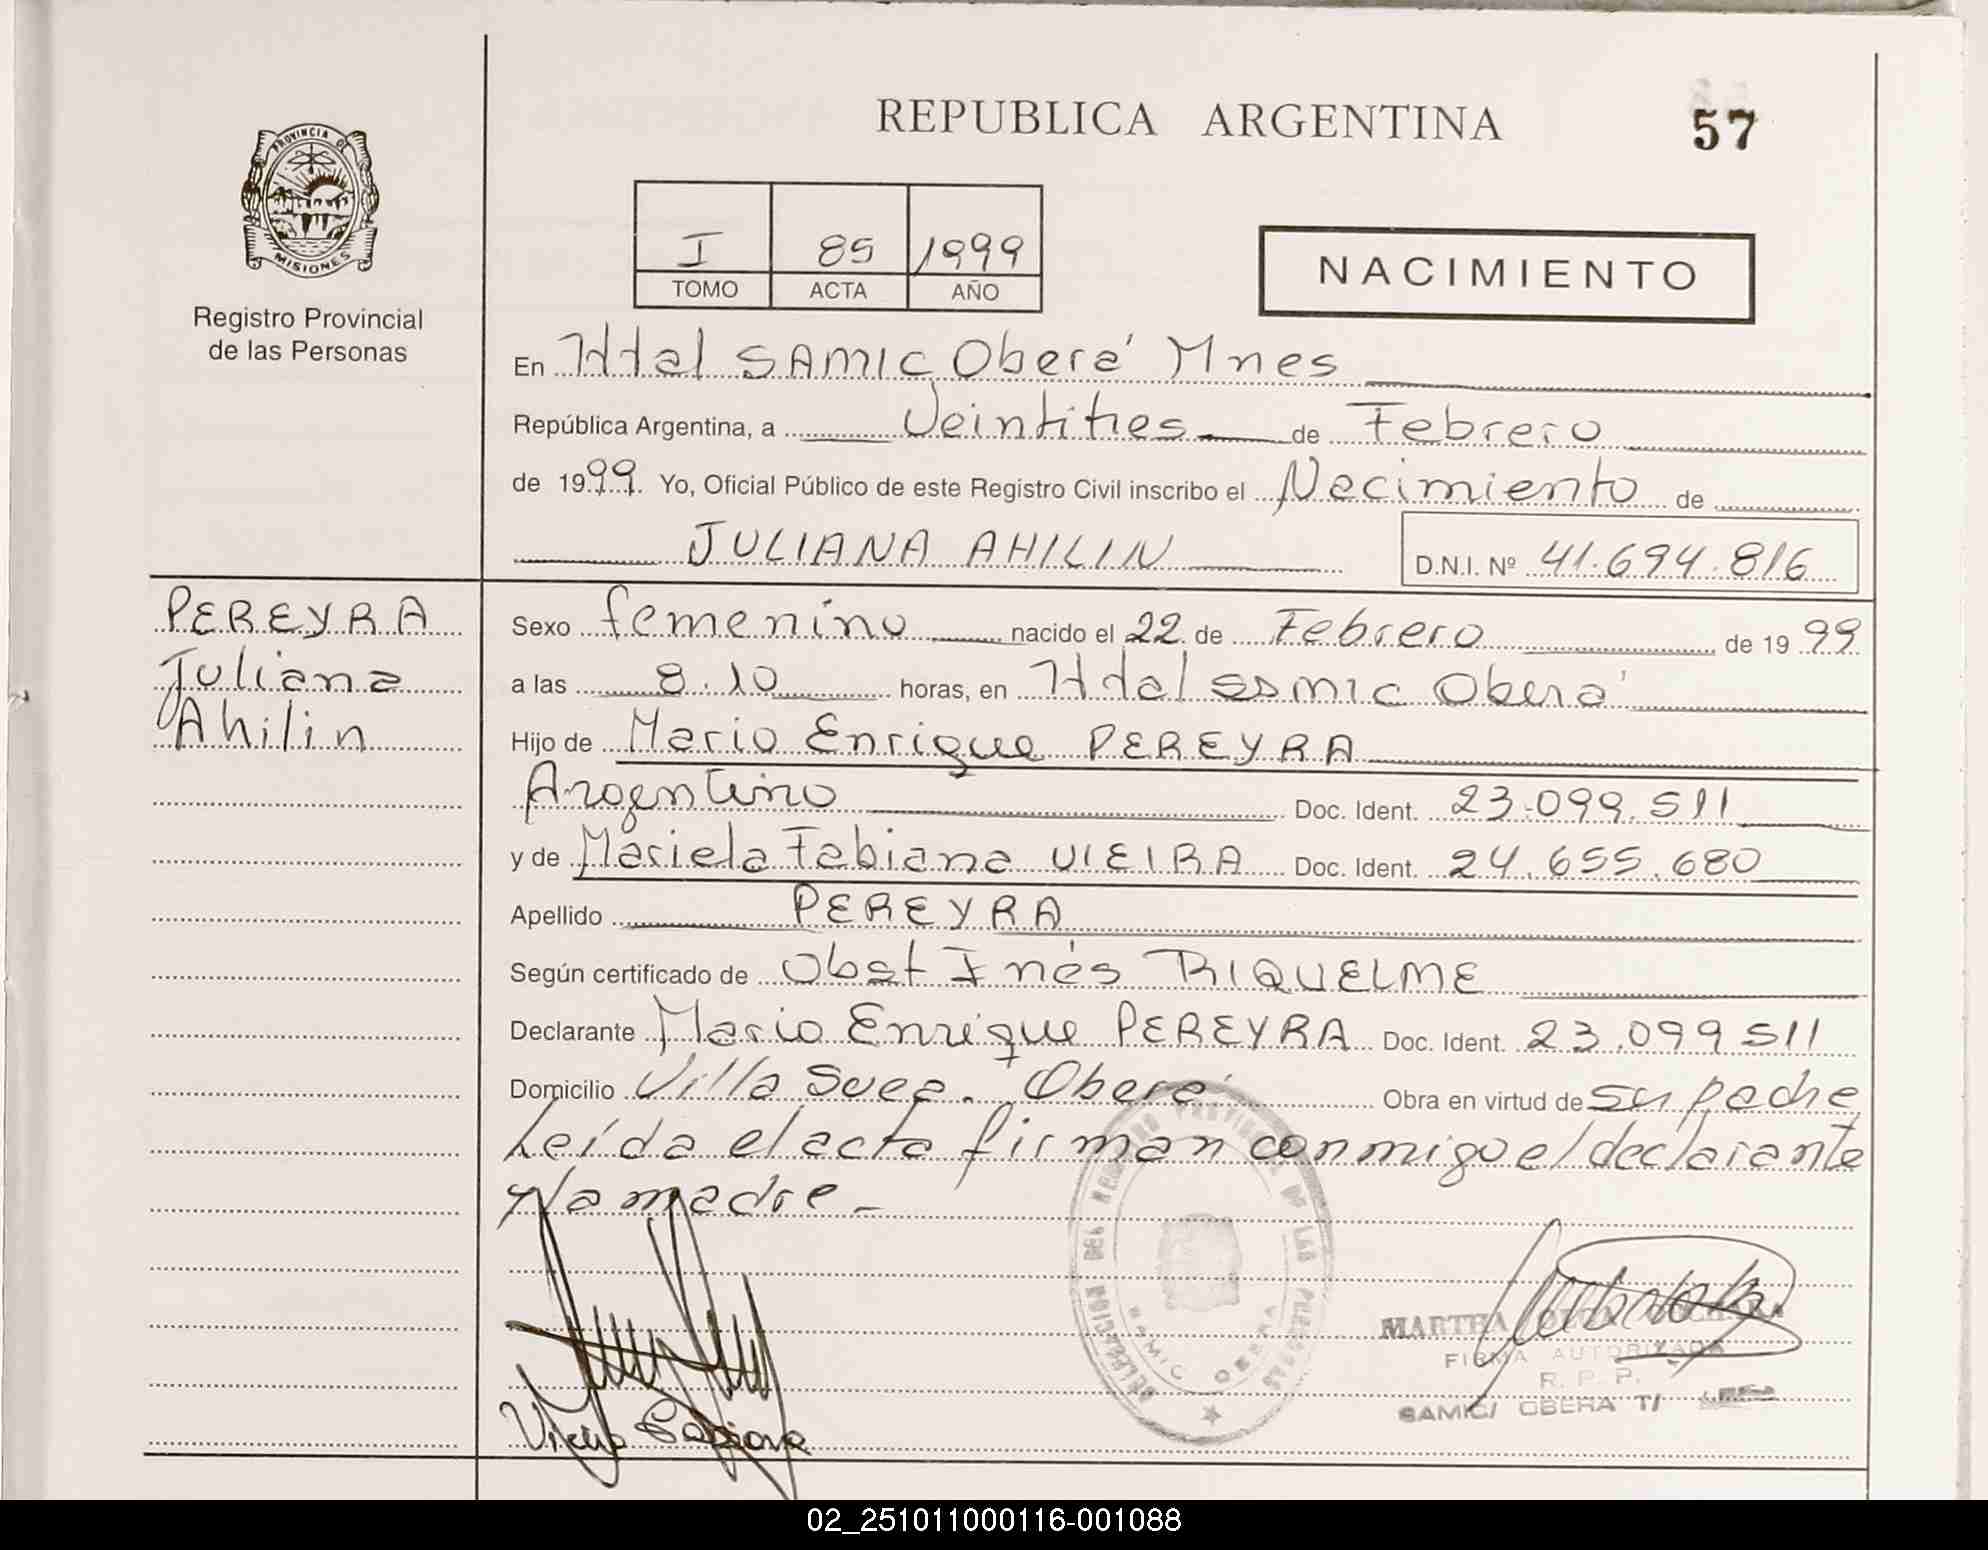 REPUBLICA ARGENTINA
57
PROVINCIA DE
MISIONES
Registro Provincial
de las Personas
I 85 1999
TOMO ACTA AÑO
NACIMIENTO
En Htal SAMIC Oberá Mnes
República Argentina, a Veintitres de Febrero
de 1999. Yo, Oficial Público de este Registro Civil inscribo el Nacimiento de
JULIANA AHILIN
D.N.I. Nº 41.694.816
PEREYRA
Juliana
Ahilin
Sexo femenino nacido el 22 de Febrero de 1999
a las 8.10 horas, en Htal samic Oberá
Hijo de Mario Enrique PEREYRA
Argentino Doc. Ident. 23.099.511
y de Mariela Fabiana VIEIRA Doc. Ident. 24.655.680
Apellido PEREYRA
Según certificado de Obst Inés RIQUELME
Declarante Mario Enrique PEREYRA Doc. Ident. 23.099 511
Domicilio Villa Suea. Oberá Obra en virtud de su padre
Leída el acta firman conmigo el declarante
y la madre.-
DELEGACION DEL REGISTRO PROVINCIAL DE LAS PERSONAS
SAMIC OBERA
MARTHA
FIRMA AUTORIZADA
R. P. P.
SAMIC/ OBERA T/
02_251011000116-001088